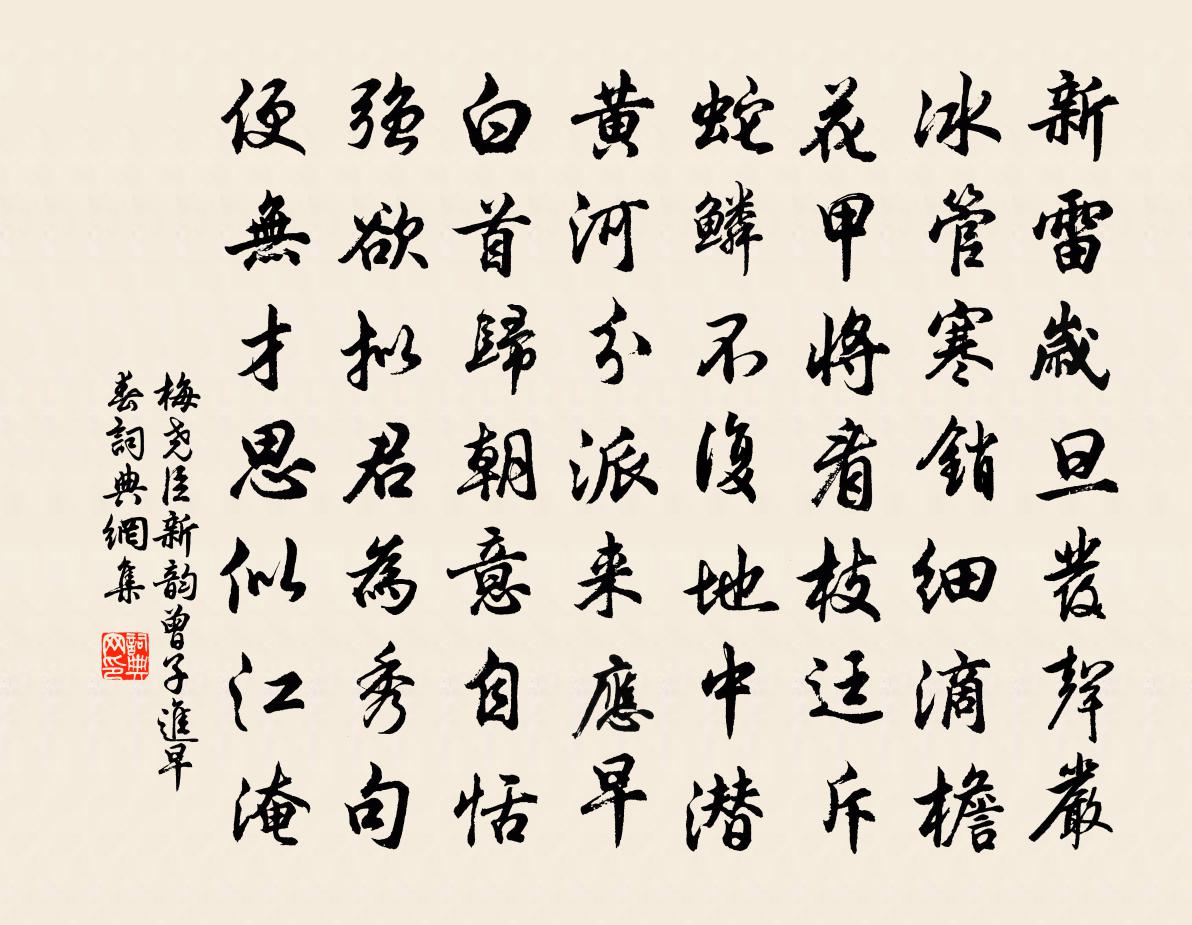 新雷歲旦發聲嚴
冰管寒銷細滴檐
花甲將看枝迋斥
蛇鱗不復地中潜
黃河分派来應早
白首歸朝意自恬
強欲拟君為秀句
便無才思似江淹
梅尧臣新韵曾子進早
春詞典網集
詞典
网印